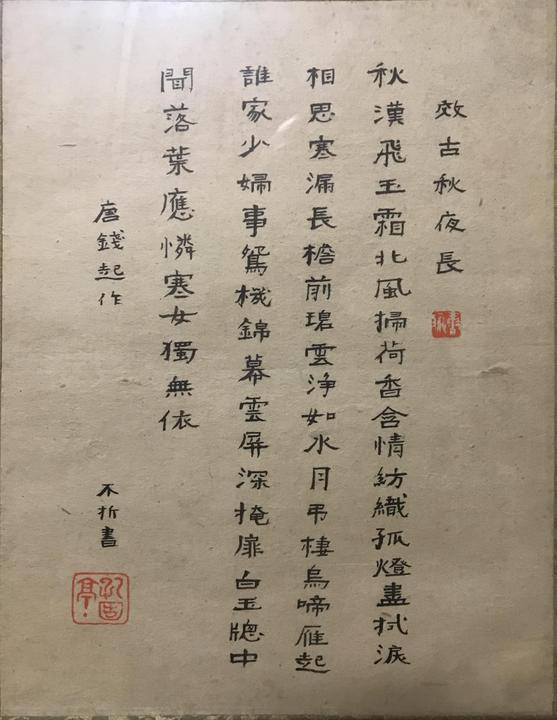 效古秋夜長
秋漢飛玉霜北風掃荷香含情紡織孤燈盡拭淚
相思寒漏長檐前碧雲淨如水月吊棲烏啼雁起
誰家少婦事鴛機錦幕雲屏深掩扉白玉牕中
聞落葉應憐寒女獨無依
唐錢起作
不折書
孔固亭